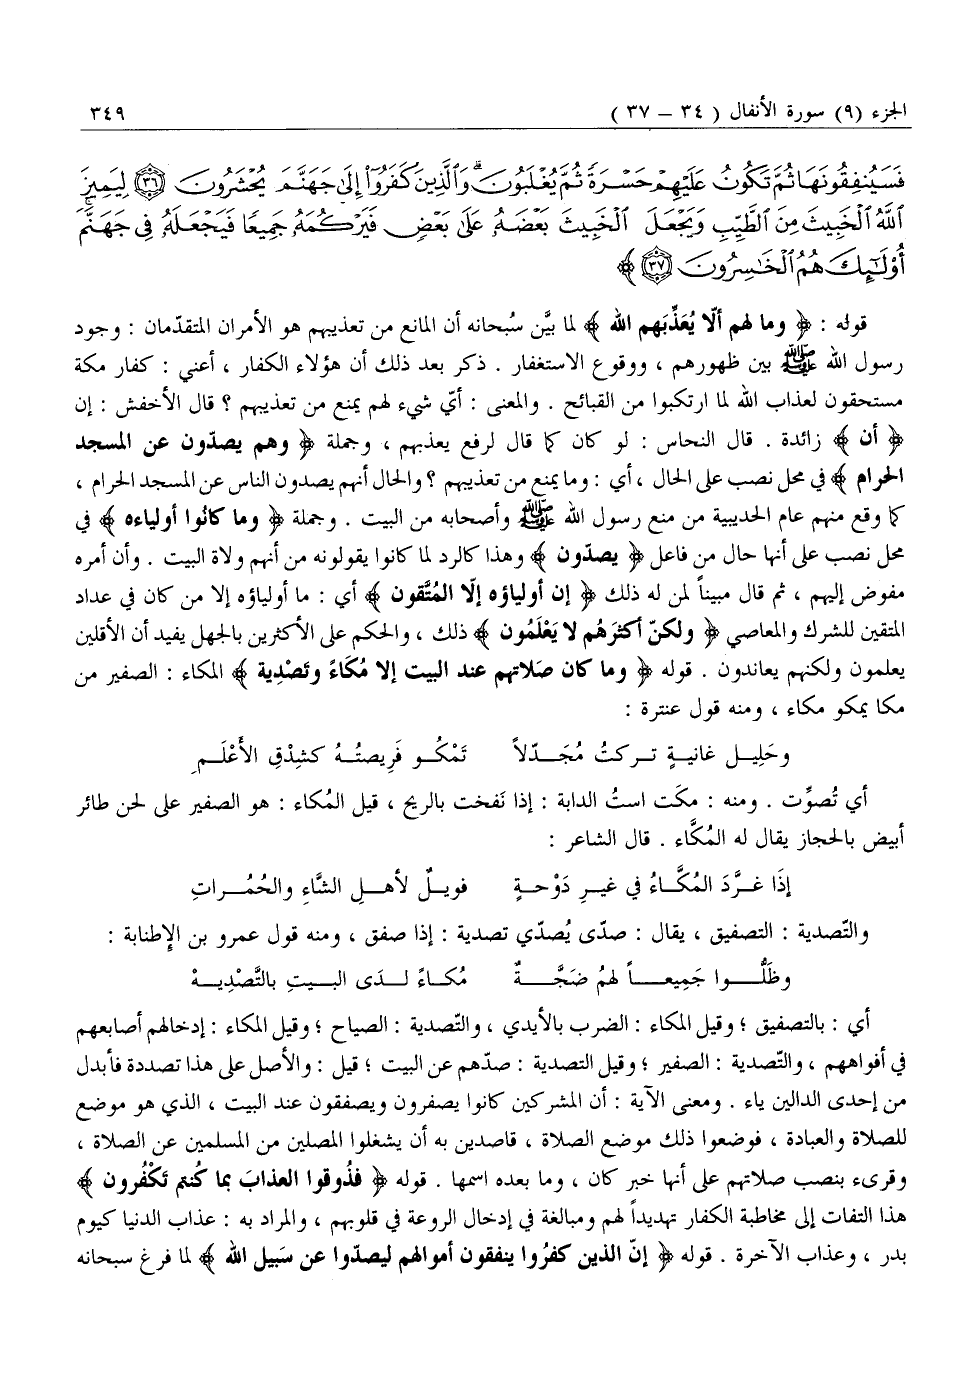 الجزء (٩) سورة الأنفال ( ٣٤ – ٣٧ ) ٣٤٩
فَسَيُنفِقُونَهَا ثُمَّ تَكُونُ عَلَيْهِمْ حَسْرَةً ثُمَّ يُغْلَبُونَ ۗ وَٱلَّذِينَ كَفَرُوٓا۟ إِلَىٰ جَهَنَّمَ يُحْشَرُونَ ﴿٣٦﴾ لِيَمِيزَ
ٱللَّهُ ٱلْخَبِيثَ مِنَ ٱلطَّيِّبِ وَيَجْعَلَ ٱلْخَبِيثَ بَعْضَهُۥ عَلَىٰ بَعْضٍ فَيَرْكُمَهُۥ جَمِيعًا فَيَجْعَلَهُۥ فِى جَهَنَّمَ ۚ
أُو۟لَـٰٓئِكَ هُمُ ٱلْخَـٰسِرُونَ ﴿٣٧﴾ ﴾
قوله : ﴿ وما لهم ألّا يُعَذِّبَهم الله ﴾ لما بيَّن سُبحانه أن المانع من تعذيبهم هو الأمران المتقدّمان : وجود
رسول الله ﷺ بين ظهورهم ، ووقوع الاستغفار . ذكر بعد ذلك أن هؤلاء الكفار ، أعني : كفار مكة
مستحقون لعذاب الله لما ارتكبوا من القبائح . والمعنى : أيّ شيء لهم يمنع من تعذيبهم ؟ قال الأخفش : إن
﴿ أن ﴾ زائدة . قال النحاس : لو كان كما قال لرفع يعذبهم ، وجملة ﴿ وهم يصدّون عن المسجد
الحرام ﴾ في محل نصب على الحال ، أي : وما يمنع من تعذيبهم ؟ والحال أنهم يصدون الناس عن المسجد الحرام ،
كما وقع منهم عام الحديبية من منع رسول الله ﷺ وأصحابه من البيت . وجملة ﴿ وما كانُوا أولياءه ﴾ في
محل نصب على أنها حال من فاعل ﴿ يصدّون ﴾ وهذا كالرد لما كانوا يقولونه من أنهم ولاة البيت . وأن أمره
مفوض إليهم ، ثم قال مبيناً لمن له ذلك ﴿ إن أولياؤه إلّا المُتَّقون ﴾ أي : ما أولياؤه إلا من كان في عداد
المتقين للشرك والمعاصي ﴿ ولكنّ أكثرَهُم لا يَعْلَمُون ﴾ ذلك ، والحكم على الأكثرين بالجهل يفيد أن الأقلين
يعلمون ولكنهم يعاندون . قوله ﴿ وما كان صَلاتهم عند البيت إلا مُكَاءً وتَصْدِية ﴾ المكاء : الصفير من
مكا يمكو مكاء ، ومنه قول عنترة :
وحَلِيـل غانيـةٍ تـركتُ مُجَـدّلاً تَمْكُـو فَرِيصتُـهُ كشِدْقِ الأَعْلَـمِ
أي تُصوِّت . ومنه : مكَت استُ الدابة : إذا نَفخت بالريح ، قيل المُكاء : هو الصفير على لحن طائر
أبيض بالحجاز يقال له المُكَّاء . قال الشاعر :
إذَا غـرَّدَ المُكَّـاءُ في غيـرِ دَوْحـةٍ فويـلٌ لأهـلِ الشَّاءِ والحُمُـراتِ
والتّصدية : التصفيق ، يقال : صدّى يُصدّي تصدية : إذا صفق ، ومنه قول عمرو بن الإِطنابة :
وظَلُّـوا جَمِيعـاً لهمُ ضَجَّـةٌ مُكـاءً لـدَى البـيتِ بالتَّصْدِيـهْ
أي : بالتصفيق ؛ وقيل المكاء : الضرب بالأيدي ، والتّصدية : الصياح ؛ وقيل المكاء : إدخالهم أصابعهم
في أفواههم ، والتّصدية : الصفير ؛ وقيل التصدية : صدّهم عن البيت ؛ قيل : والأصل على هذا تصددة فأبدل
من إحدى الدالين ياء . ومعنى الآية : أن المشركين كانوا يصفرون ويصفقون عند البيت ، الذي هو موضع
للصلاة والعبادة ، فوضعوا ذلك موضع الصلاة ، قاصدين به أن يشغلوا المصلين من المسلمين عن الصلاة ،
وقرىء بنصب صلاتهم على أنها خبر كان ، وما بعده اسمها . قوله ﴿ فذُوقوا العذابَ بما كُنتم تَكْفُرون ﴾
هذا التفات إلى مخاطبة الكفار تهديداً لهم ومبالغة في إدخال الروعة في قلوبهم ، والمراد به : عذاب الدنيا كيوم
بدر ، وعذاب الآخرة . قوله ﴿ إنّ الذين كفرُوا ينفقون أموالهم ليصدّوا عن سَبيل الله ﴾ لما فرغ سبحانه